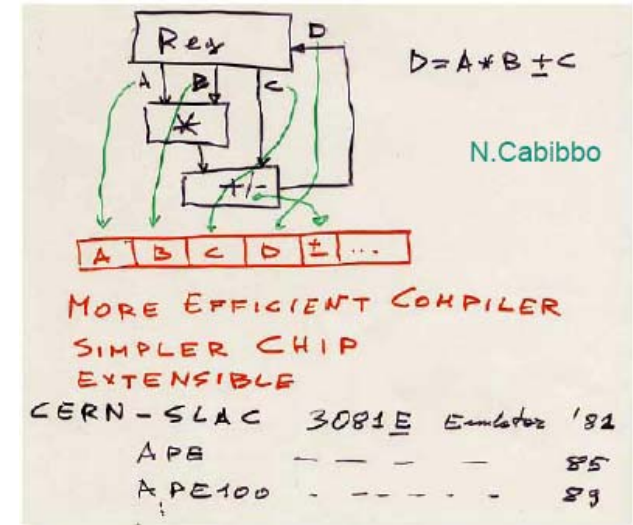 D
Reg
D=A*B±C
A B C
*
N.Cabibbo
+/-
A B C D ± ...
MORE EFFICIENT COMPILER
SIMPLER CHIP
EXTENSIBLE
CERN-SLAC 3081E Emulator '82
APE - - - - 85
APE100 - - - - - - 89